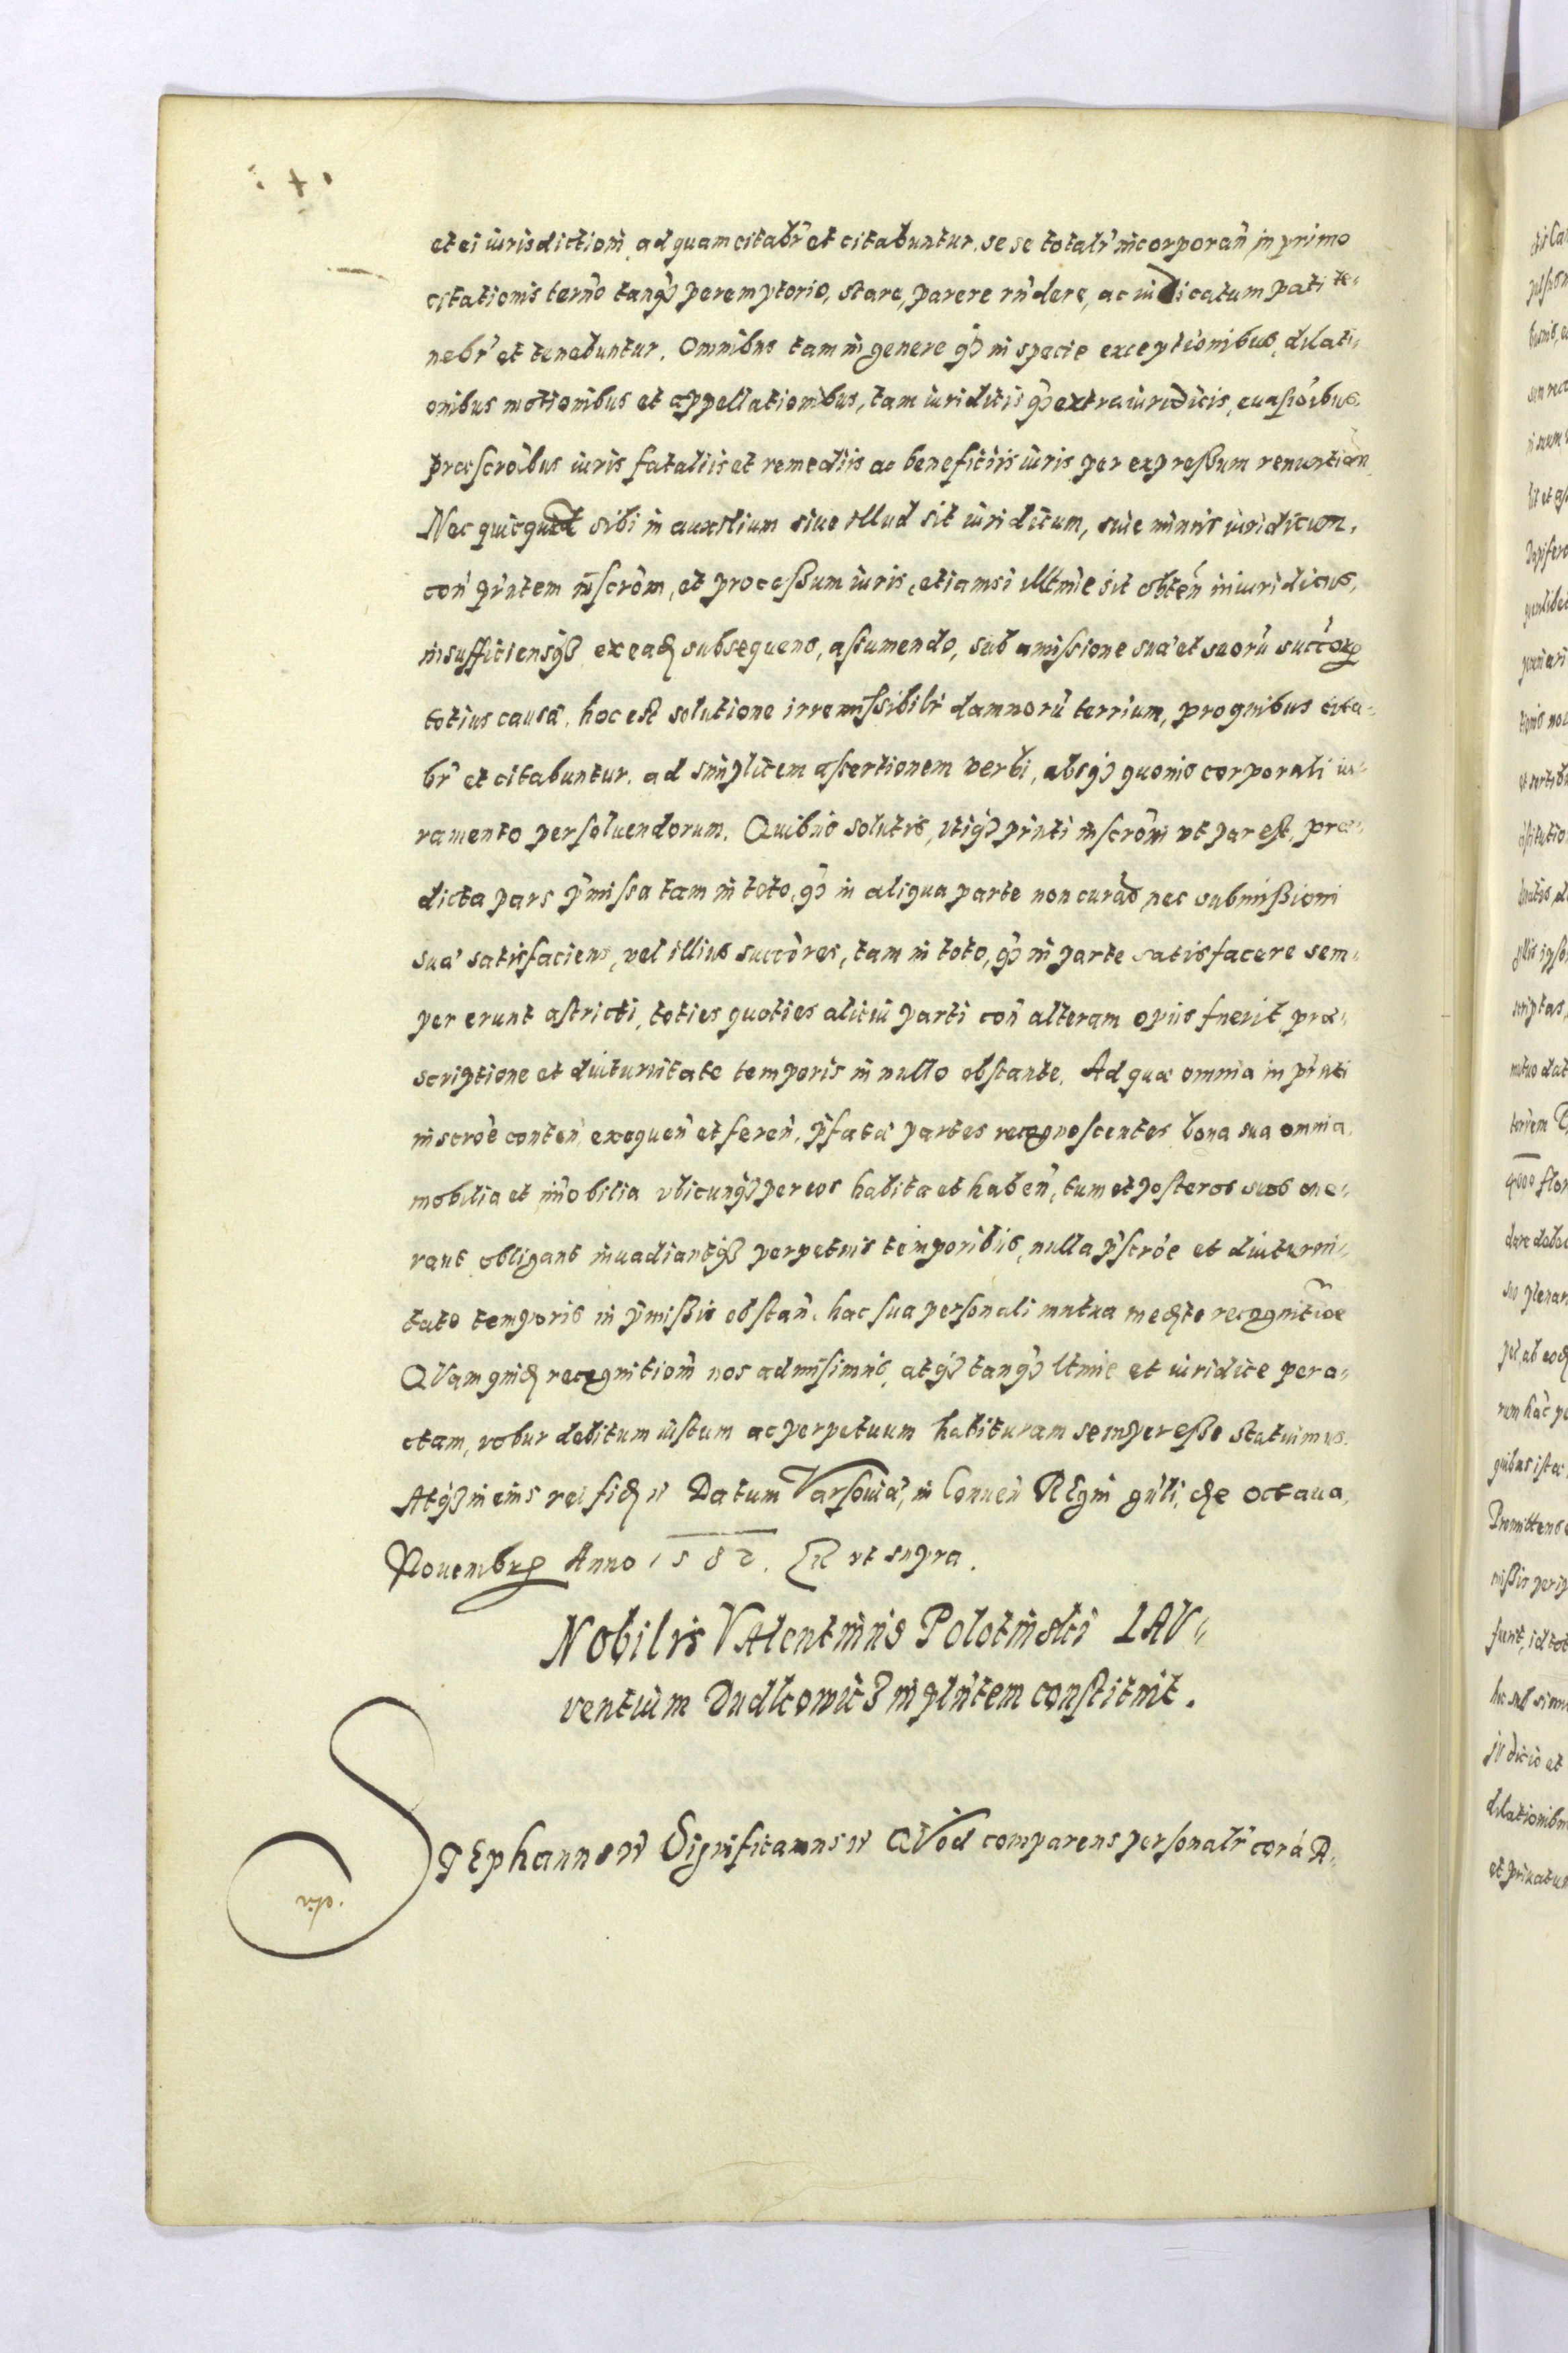 et ei iurisdictioñ ad quam citabr̃ et citabuntur. se se totalr̃ incorporañ in primo
citationis terño tanq̃ peremptorio, stare, parere rñdere, ac iudicatum pati te=
nebr̃ et tenebuntur. Omnibus tam in genere q̃ in specie exceptionibus, dilati=
onibus motionibus et appellationibus, tam iuridicis q̃ extraiuridicis, euasiõibus
præscrõibus iuris fatalijs et remedijs ac beneficijs iuris per expreßum renuntiañ
Nec quicquid sibi in auxilium siue illud sit iuridicum, siue minus iuridicum,
coñ pñtem inscrõm, et proceßum iuris, etiamsi illtmie sit obteñ iniuridicus,
insufficiensq3 ex eadẽ subsequens, assumendo, sub amissione suæ et suorũ succõrꝝ
totius causæ. hoc est solutione irremissibilr̃ damnorũ terrium, pro quibus cita=
br̃ et citabuntur. ad simplicem assertionem verbi, absq3 quouis corporali iu=
ramento persoluendorum. Quibus solutis, vtiq3 pñti inscrõni vt par est, præ=
dicta pars p̃missa tam in toto, q̃ in aliqua parte non curãs nec submißioni
suæ satisfaciens, vel illius succõres, tam in toto, q̃ in parte satisfacere sem=
per erunt astricti, toties quoties alicui parti coñ alteram opus fuerit præ=
scriptione et diuturnitate temporis in nullo obstante. Ad quæ omnia in pñti
inscrõe conteñ exequeñ et fereñ, p̃fatæ partes recognoscentes bona sua omnia
mobilia et im̃obilia vbicunq3 per eos habita et habeñ, tum et posteros suos one=
rant obligant inuadiantq3 perpetuis temporibus, nulla p̃scrõe et diuturni=
tate temporis in p̃mißis obstañ. hac sua personali mutua medẽte recognitiõe
QVam quidẽ recognitioñ nos admisimus, atq3 tanq̃ ltmie et iuridice pera=
ctam, robur debitum iustum ac perpetuum habituram semper eße statuimus.
Atq3 in eius rei fidẽ ɳ Datum Varsouiæ, in Conueñ REgni gñli, die octaua
Nouembrꝝ Anno 1582. Rꝛ vt supra.
Nobilis VAlentinus Polotinski LAV=
rentium Dudkowicz in plñtem constituit.
STEphannus ɳ Significamus ɳ QVod comparens personalr̃ corã A=